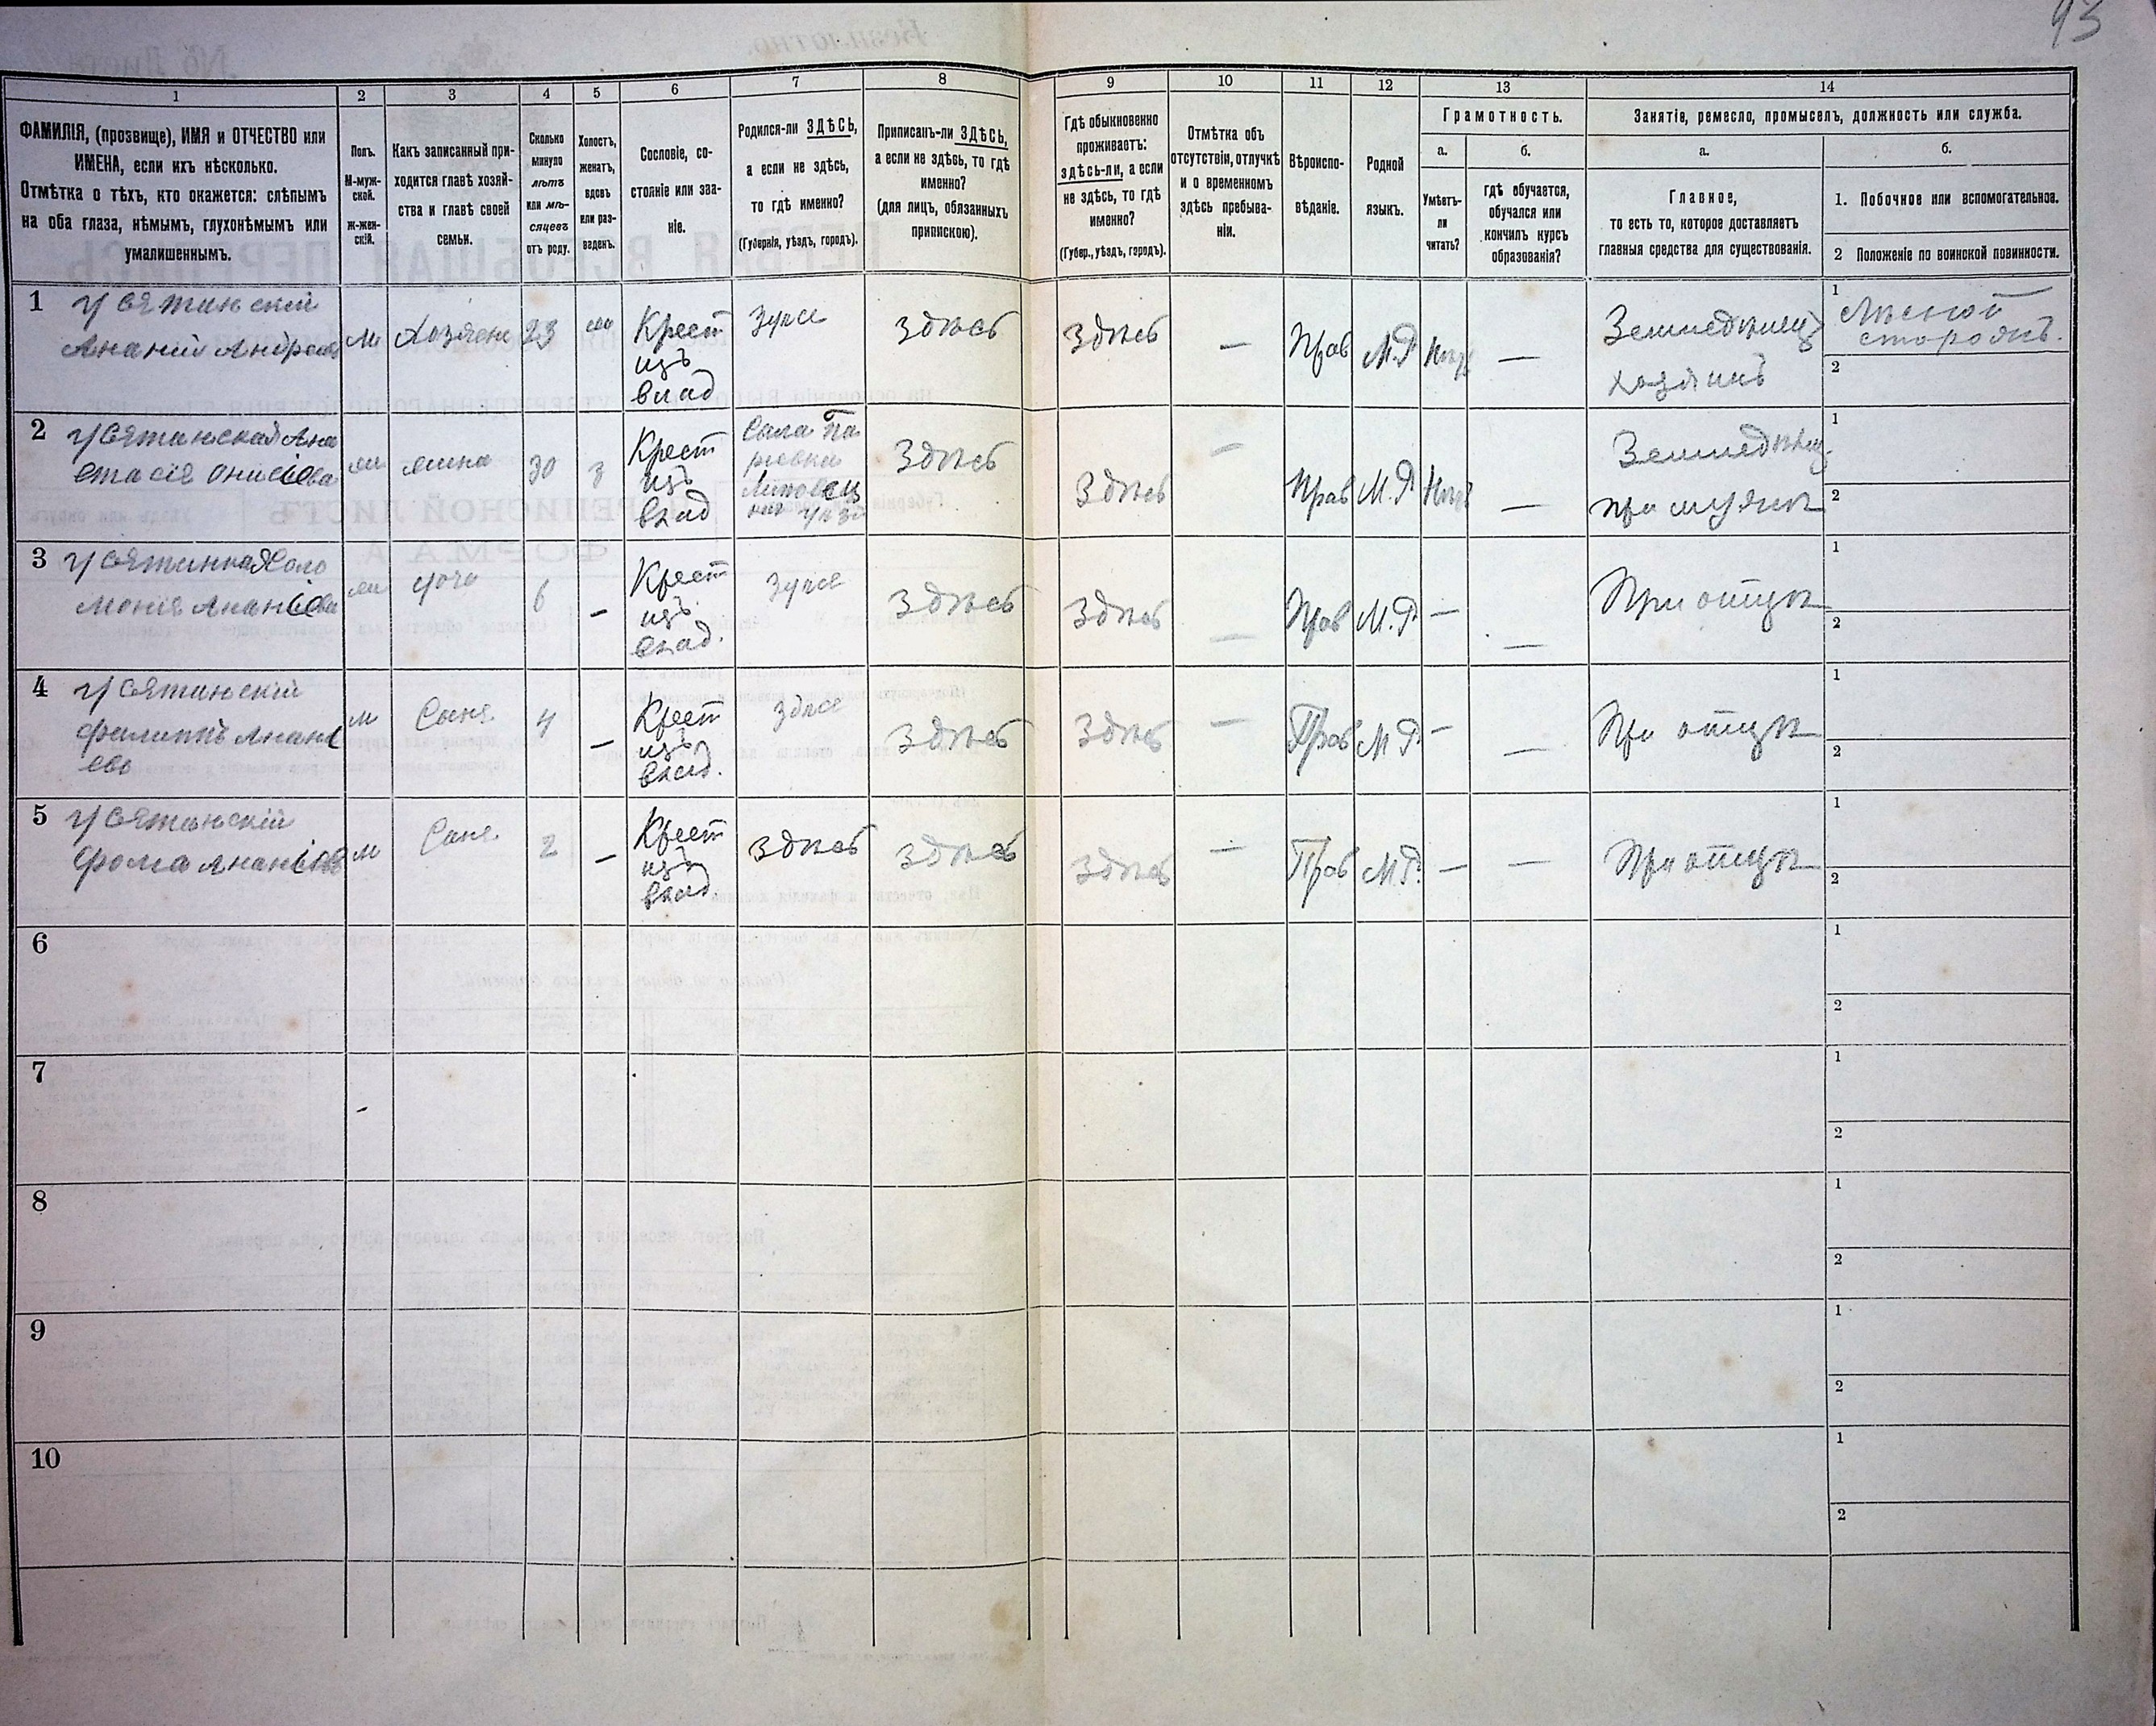 93
1
2
3
4
5
6
7
8
9
10
11
12
13
14
ФАМИЛІЯ, (прозвище), ИМЯ и ОТЧЕСТВО или
ИМЕНА, если ихъ нѣсколько.
Отмѣтка о тѣхъ, кто окажется: слѣпымъ
на оба глаза, нѣмымъ, глухонѣмымъ или
умалишеннымъ.
Полъ.
М-муж-
ской.
ж-жен-
скій.
Какъ записанный при-
ходится главѣ хозяй-
ства и главѣ своей
семьи.
Сколько
минуло
лѣтъ
или мѣ-
сяцевъ
отъ роду.
Холостъ,
женатъ,
вдовъ
или раз-
веденъ.
Сословіе, со-
стояніе или зва-
ніе.
Родился-ли ЗДѢСЬ,
а если не здѣсь,
то гдѣ именно?
(Губернія, уѣздъ, городъ).
Приписанъ-ли ЗДѢСЬ,
а если не здѣсь, то гдѣ
именно?
(для лицъ, обязанныхъ
припискою).
Гдѣ обыкновенно
проживаетъ:
здѣсь-ли, а если
не здѣсь, то гдѣ
именно?
(Губер., уѣздъ, городъ).
Отмѣтка объ
отсутствіи, отлучкѣ
и о временномъ
здѣсь пребыва-
ніи.
Вѣроиспо-
вѣданіе.
Родной
языкъ.
Грамотность.
а.
б.
Умѣетъ-
ли
читать?
гдѣ обучается,
обучался или
кончилъ курсъ
образованія?
Занятіе, ремесло, промыселъ, должность или служба.
а.
б.
Главное,
то есть то, которое доставляетъ
главныя средства для существованія.
1. Побочное или вспомогательное.
2 Положеніе по воинской повинности.
1
Усятинскій
Ананий Андреевъ
м
Хозяен
Крест
изъ
влад
здѣсь
Здѣсь
—
Прав
М.Р
—
Земледѣлец
хозяинъ
1
Лѣсной
сторожъ.
2
2
Усятинская Ана
стасія Онисіева
жена
30
з
Крест
изъ
влад
Здѣсь
Здѣсь
—
Прав
М.Р
—
Земледѣлец.
при мужѣ
1
2
3
Соло
монія Ананіева
6
—
Крест
изъ
влад.
Здѣсь
Здѣсь
—
Прав
М.Р
—
—
При отцѣ
1
2
4
Усятинскій
Филиппъ Анані
ево
м
Сынъ
4
—
Крест
изъ
влад.
здѣсе
Здѣсь
Здѣсь
—
Прав
М Р.
—
—
При отцѣ
1
2
5
Усятинскій
Фома Ананіев
м
Сынъ
2
—
Крест
изъ
влад
Здѣсь
Здѣсь
Здѣсь
—
Прав
М.Р.
—
—
При отцѣ
1
2
6
1
2
7
1
2
8
1
2
9
1
2
10
1
2